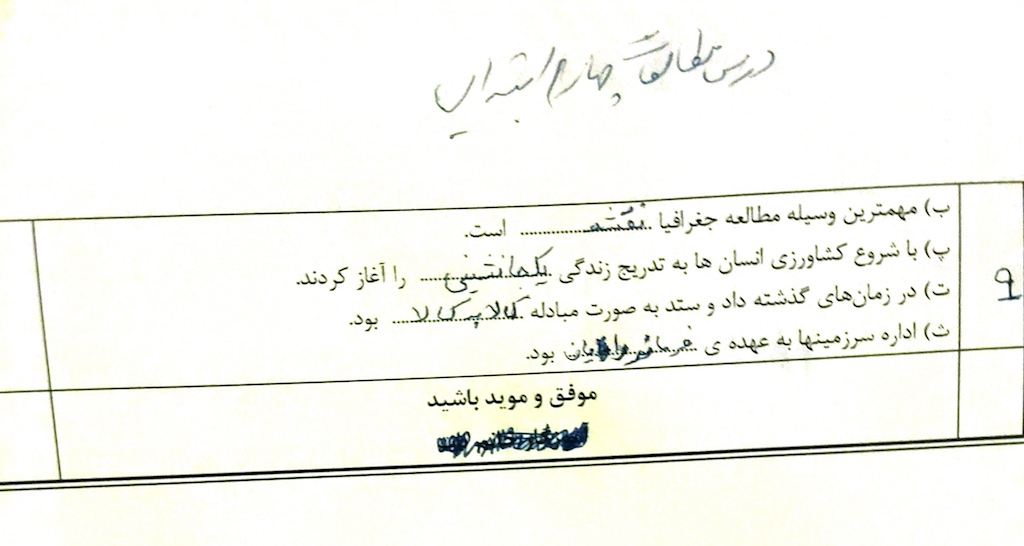 درس مطالعات چهارم ابتدایی
ب) مهمترین وسیله مطالعه جغرافیا نقشه است.
پ) با شروع کشاورزی انسان ها به تدریج زندگی یکجانشینی را آغاز کردند.
ت) در زمان‌های گذشته داد و ستد به صورت مبادله کالا به کالا بود.
ث) اداره سرزمینها به عهده ی فرمانروایان بود.
9
موفق و موید باشید